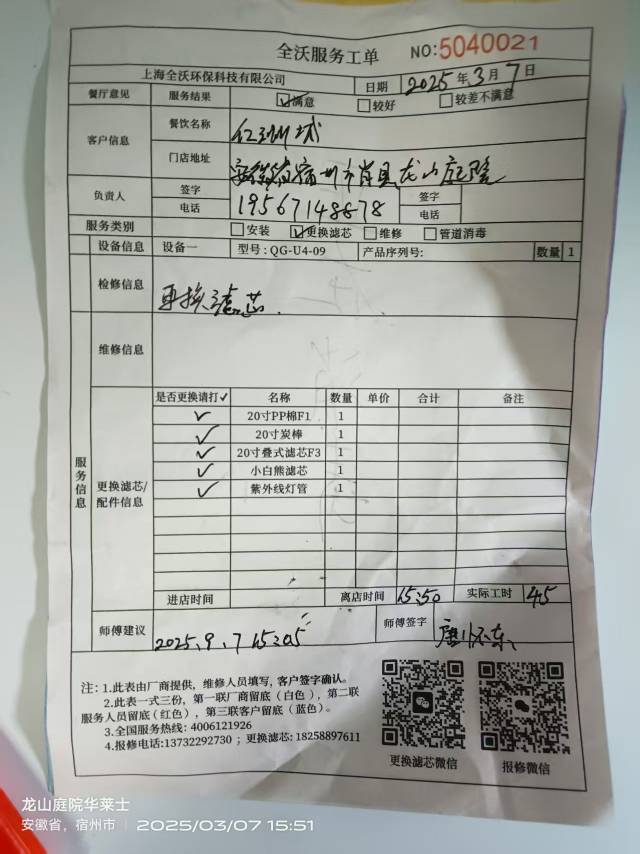 全沃服务工单 NO:5040021
上海全沃环保科技有限公司 日期 2025年3月7日
餐厅意见 服务结果 ☑满意 □较好 □较差不满意
客户信息 餐饮名称
门店地址 宿州市肖县龙山庭院
负责人 签字 签字
电话 19567148878 电话
服务类别 □安装 ☑更换滤芯 □维修 □管道消毒
设备信息 设备一 型号:QG-U4-09 产品序列号: 数量 1
检修信息 更换滤芯.
维修信息
服务信息
更换滤芯/
配件信息
是否更换请打✓ 名称 数量 单价 合计 备注
✓ 20寸PP棉F1 1
✓ 20寸炭棒 1
✓ 20寸叠式滤芯F3 1
✓ 小白熊滤芯 1
✓ 紫外线灯管 1
进店时间 离店时间 15:50 实际工时 45
师傅建议 2025.9.7 15:05 师傅签字 唐怀东
注:1.此表由厂商提供,维修人员填写,客户签字确认。
2.此表一式三份,第一联厂商留底(白色),第二联
服务人员留底(红色),第三联客户留底(蓝色)。
3.全国服务热线:4006121926
4.报修电话:13732292730;更换滤芯:18258897611
更换滤芯微信 报修微信
龙山庭院华莱士
安徽省,宿州市 2025/03/07 15:51